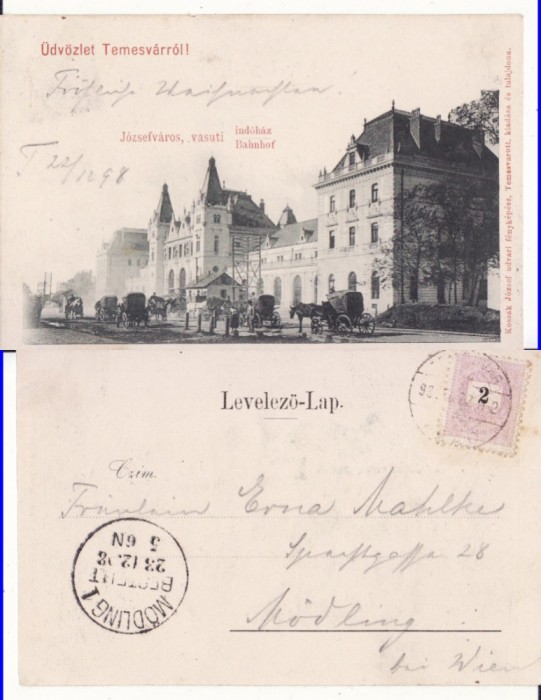 Üdvözlet Temesvárról!
Fröhliche Weihnachten!
T 22/12 98
Józsefváros, vasuti indóház
Bahnhof
Kossak József udvari fényképész, Temesvárott, kiadása és tulajdona.
Levelező-Lap.
2
98.
Czim.
Fräulein Erna Mahlke
28
Mödling
bei Wien
MÖDLING 1
BESTELLT
23.12.98
5 6N